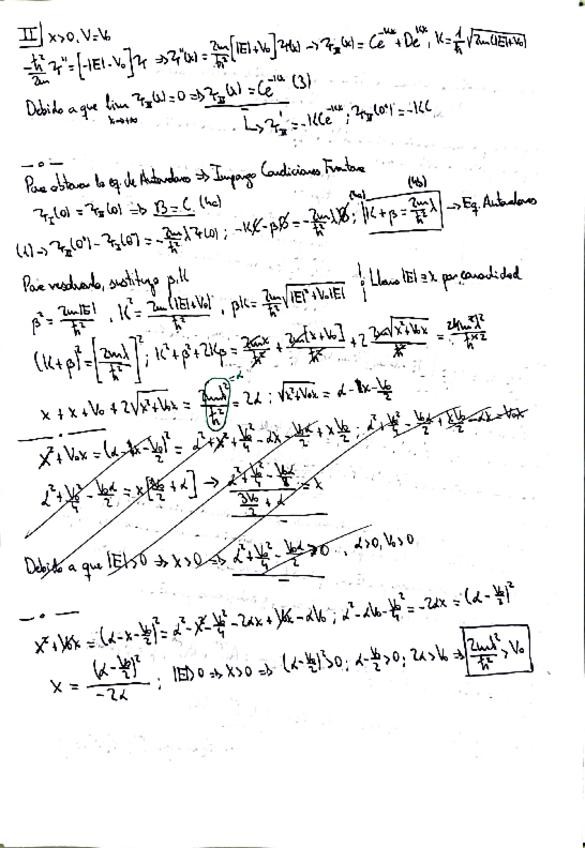 II x>0, V=V₀
-ħ²/2m Ψ'' = [-|E|-V₀]Ψ ⇒ Ψ''(x) = 2m/ħ² [|E|+V₀]Ψ(x) → Ψ_II(x) = Ce^{-Kx} + De^{Kx}, K = 1/ħ √(2m(|E|+V₀))
Debido a que lim_{x→+∞} Ψ_II(x) = 0 ⇒ Ψ_II(x) = Ce^{-Kx} (3)
↳ Ψ'_II = -KCe^{-Kx}; Ψ'_II(0⁺) = -KC
Para obtener la eq. de Autovalores ⇒ Impongo Condiciones Frontera
Ψ_I(0) = Ψ_II(0) ⇒ B = C (4a)
(1) → Ψ'_II(0⁺) - Ψ'_I(0⁻) = -2m/ħ² λΨ(0); -KC - βB = -2m/ħ² λB; (4a) K + β = 2m/ħ² λ (4b) → Eq. Autovalores
Para resolverlo, sustituyo β, K
β² = 2m|E|/ħ², K² = 2m(|E|+V₀)/ħ², βK = 2m/ħ² √(|E|²+V₀|E|) ¡ Llamo |E| ≡ x por comodidad
(K+β)² = [2mλ/ħ²]²; K²+β²+2Kβ = 2mx/ħ² + 2m[x+V₀]/ħ² + 2 2m√(x²+V₀x)/ħ² = 4m²λ²/ħ⁴
x + x + V₀ + 2√(x²+V₀x) = 2mλ²/ħ² = 2α; √(x²+V₀x) = α - x - V₀/2
=α
x²+V₀x = (α - x - V₀/2)² = α² + x² + V₀²/4 - αx - V₀α/2 + xV₀/2; α² + V₀²/4 - V₀α/2 + xV₀/2 - αx = V₀x
α² + V₀²/4 - V₀α/2 = x[3V₀/2 + α] → (α² + V₀²/4 - V₀α/2)/(3V₀/2 + α) = x
Debido a que |E|>0 ⇒ x>0 ⇒ α² + V₀²/4 - V₀α/2 > 0, α>0, V₀>0
x²+V₀x = (α - x - V₀/2)² = α² - x² - V₀²/4 - 2αx + V₀x - αV₀; α² - αV₀ - V₀²/4 = -2αx = (α - V₀/2)²
x = (α - V₀/2)²/(-2α); |E|>0 ⇒ x>0 ⇒ (α - V₀/2)² > 0; α - V₀/2 > 0; 2α > V₀ ⇒ 2mλ²/ħ² > V₀